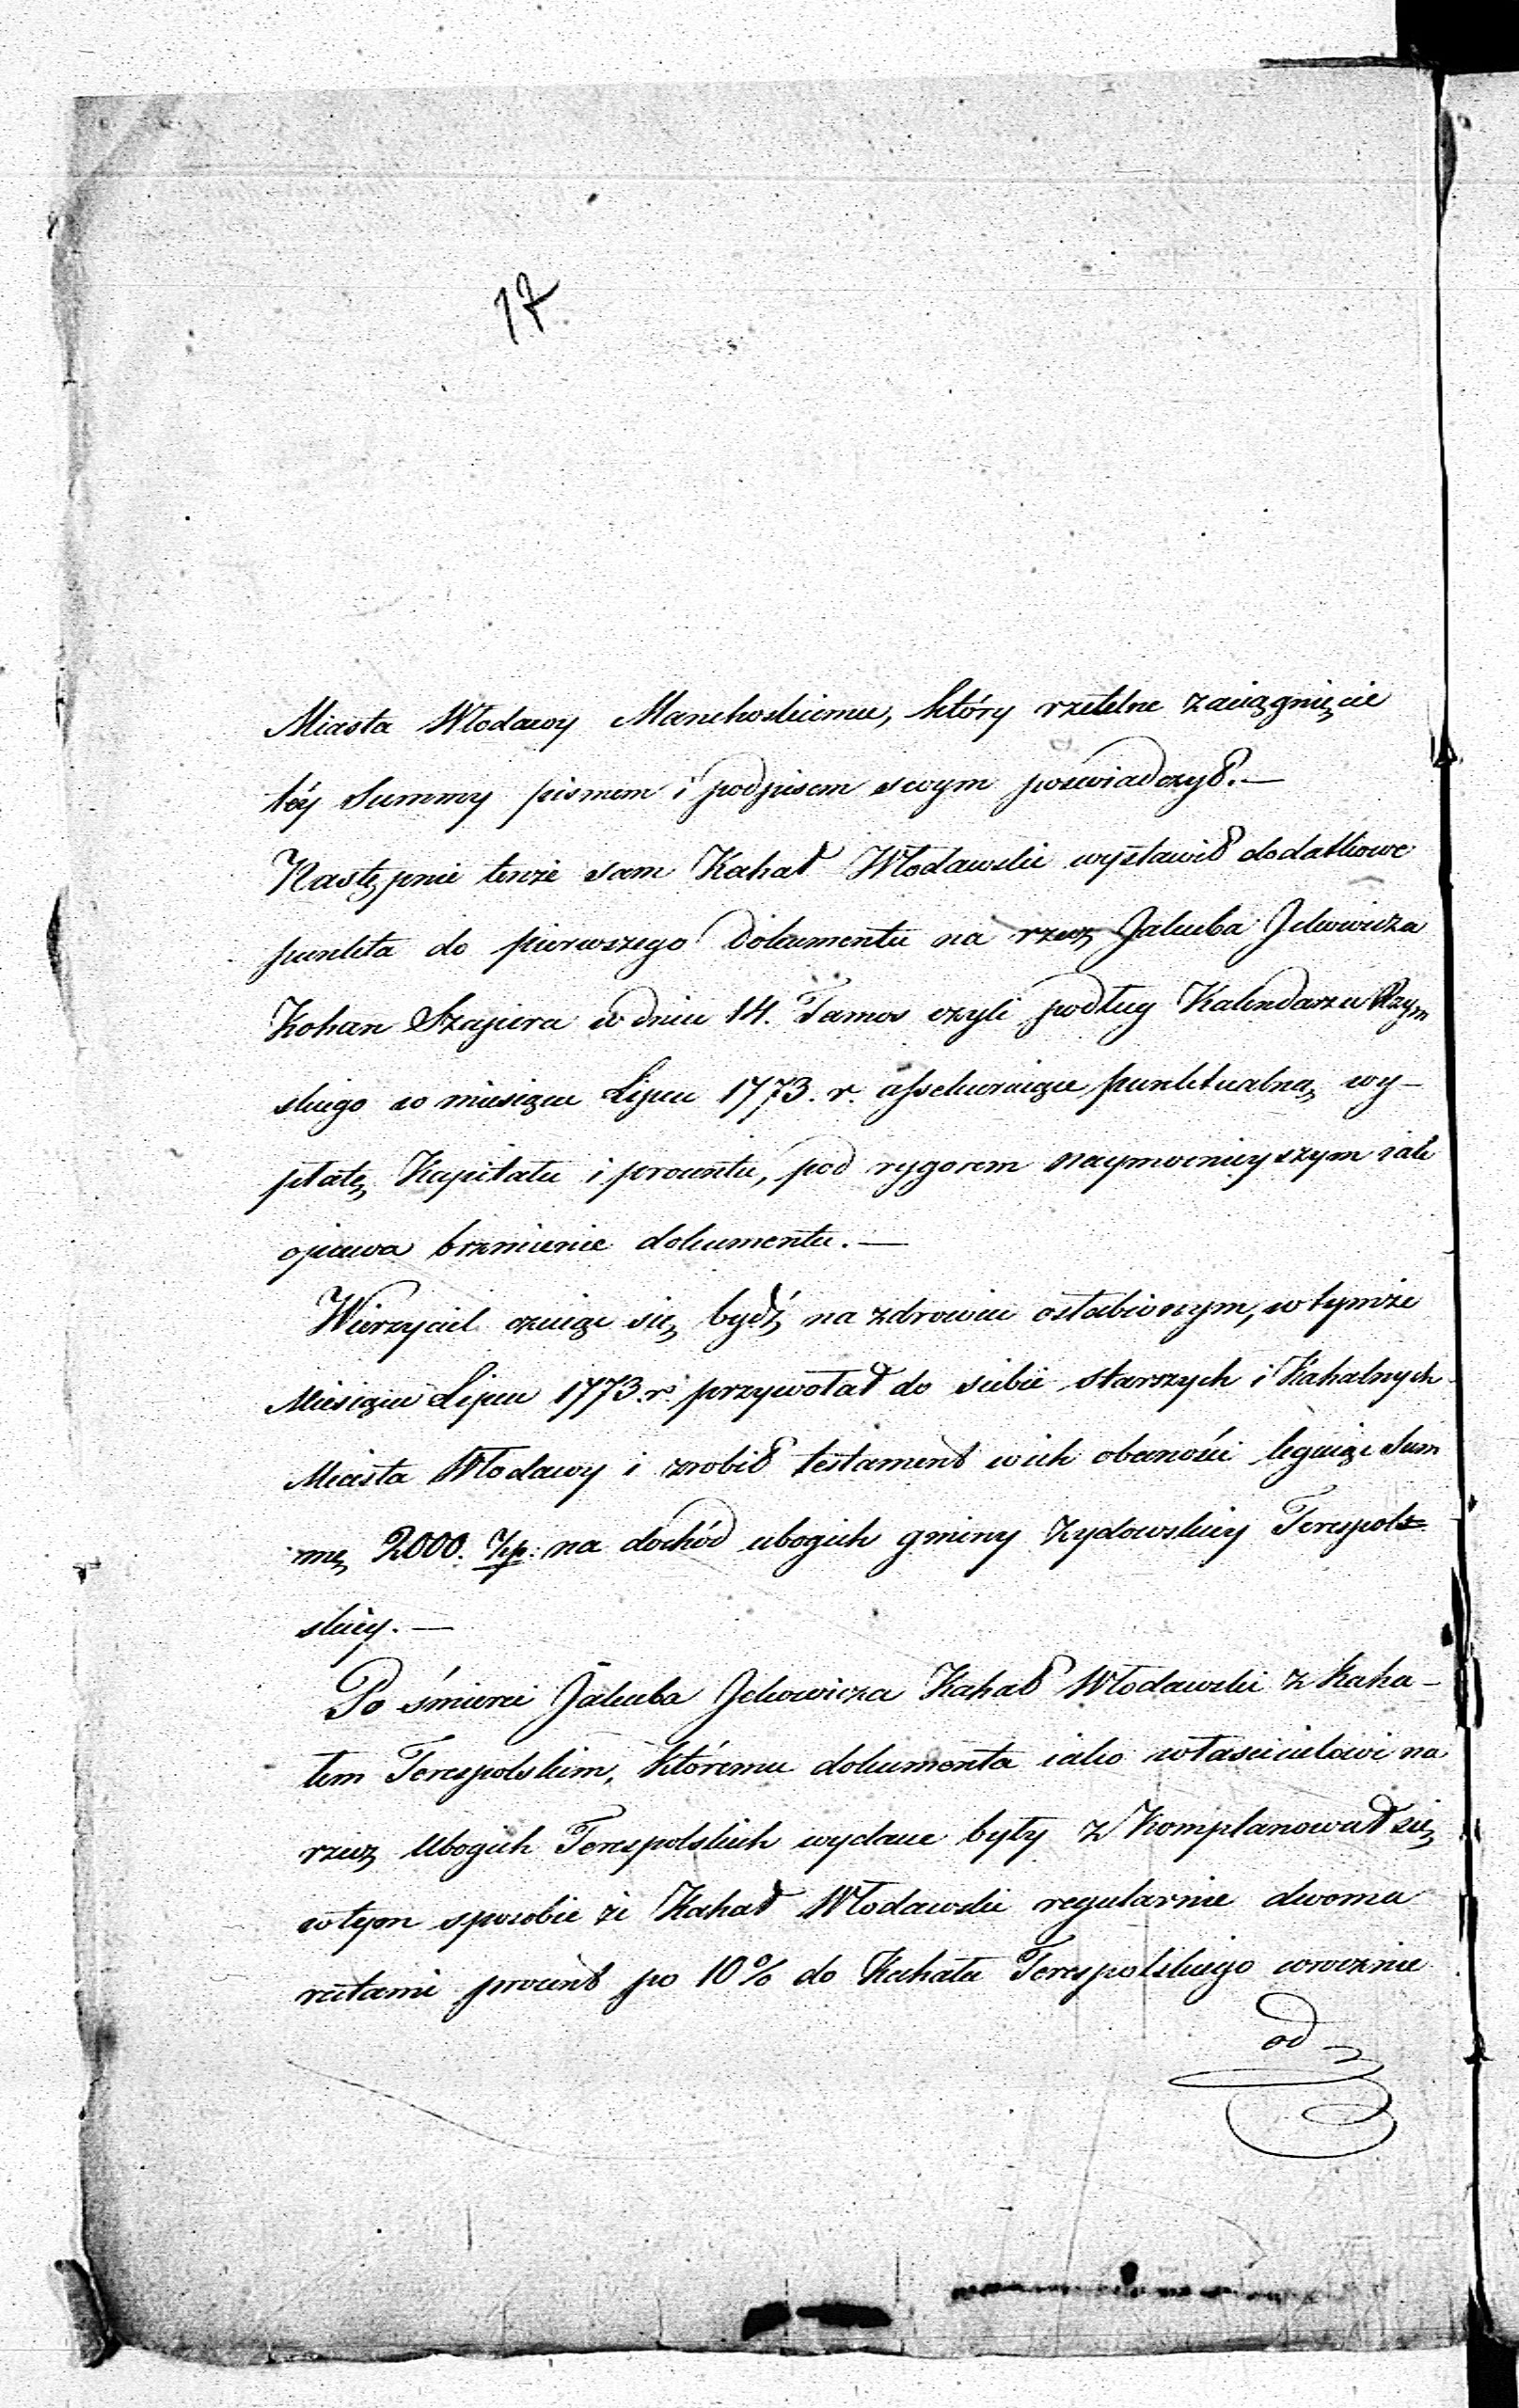 17
Miasta Włodawy Manchoskiemu, który rzetelne zaciągnięcie
téy Summy pismem i podpisem swym poświadczył. —
Następnie tenże sam Kahał Włodawski wystawił dodatkowe
punkta do pierwszego dokumentu na rzecz Jakuba Jckowicza
Kohan Szapiera w dniu 14. Tamos czyli podług Kalendarza Rzym
skiego w miesiącu Lipcu 1773. r. assekuruiąc punktualną wy—
płatę Kapitału i procentu, pod rygorem naymocnieyszym iak
opiewa brzmienie dokumentu. —
Wierzyciel czuiąc się bydź na zdrowiu osłabionym, w tymże
Miesiącu Lipcu 1773. r. przywołał do siebie starszych i Kahalnych
Miasta Włodawy i zrobił testament w ich obecności leguiąc Sum
mę 2000. Złp: na dochód ubogich gminy Żydowskiey Terespols
skiey. —
Po śmierci Jakuba Jckowicza Kahał Włodawski z Kaha—
łem Terespolskim, któremu dokumenta iako właścicielowi na
rzecz Ubogich Terespolskich wydane były z Komplanował się
w tym sposobie że Kahał Włodawski regularnie dwoma
ratami procent po 10% do Kahału Terespolskiego corocznie
od